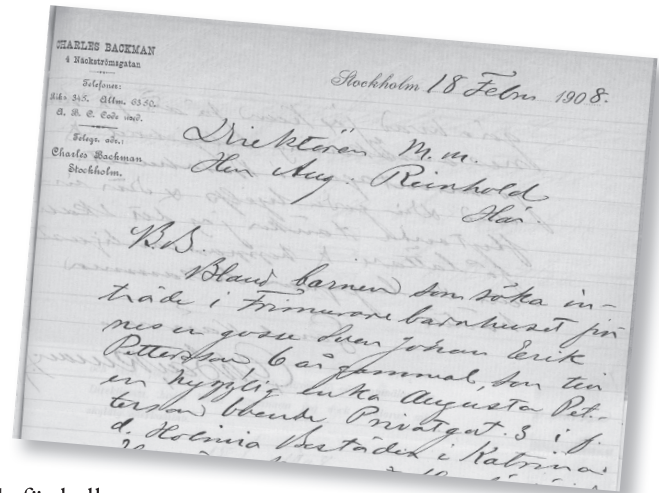 CHARLES BACKMAN
4 Näckströmsgatan
Telefoner:
Riks 345. Allm. 6350.
A. B. C. Code used.
Telegr. adr.:
Charles Backman
Stockholm.
Stockholm 18 Febru 1908.
Direktören m.m.
Herr Aug. Reinhold
Här.
B.B.
Bland barnen som söka in-
träde i Frimurare barnhuset fin
nes en gosse Sven Johan Erik
Pettersson 6 år gammal, son till
en hygglig enka Augusta Pet-
terson boende Privatgat. 3 i f.
d. Holmia Bostäder i Katrina